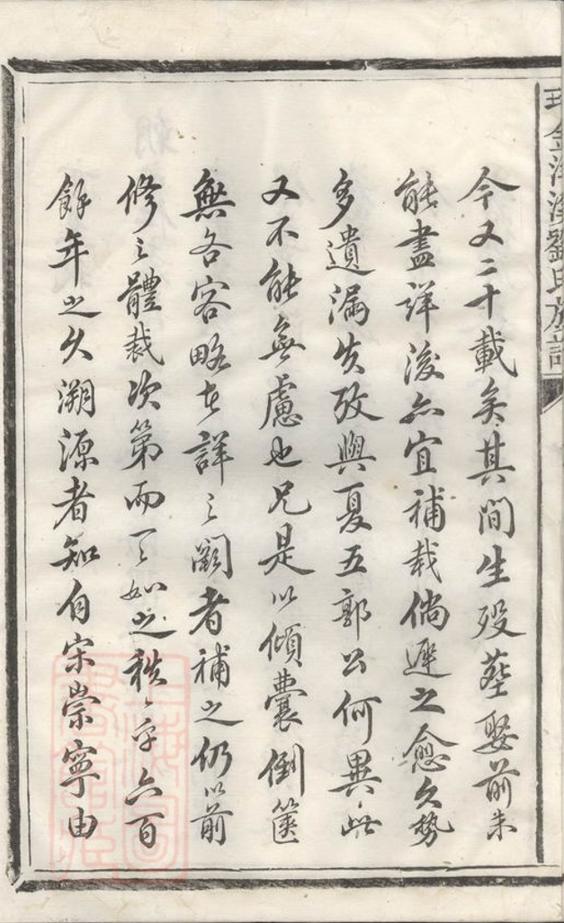 金洋湊劉氏族譜
今又二十載矣其間生歿塟娶前未
能盡詳後亦宜補裁倘遲之愈久勢
多遺漏失攷與夏五郭公何異此
又不能無慮也兄是以傾囊倒篋
無吝客略者詳之闕者補之仍以前
修之體裁次第而一一如之秩秩乎六百
餘年之久溯源者知自宋崇寧由